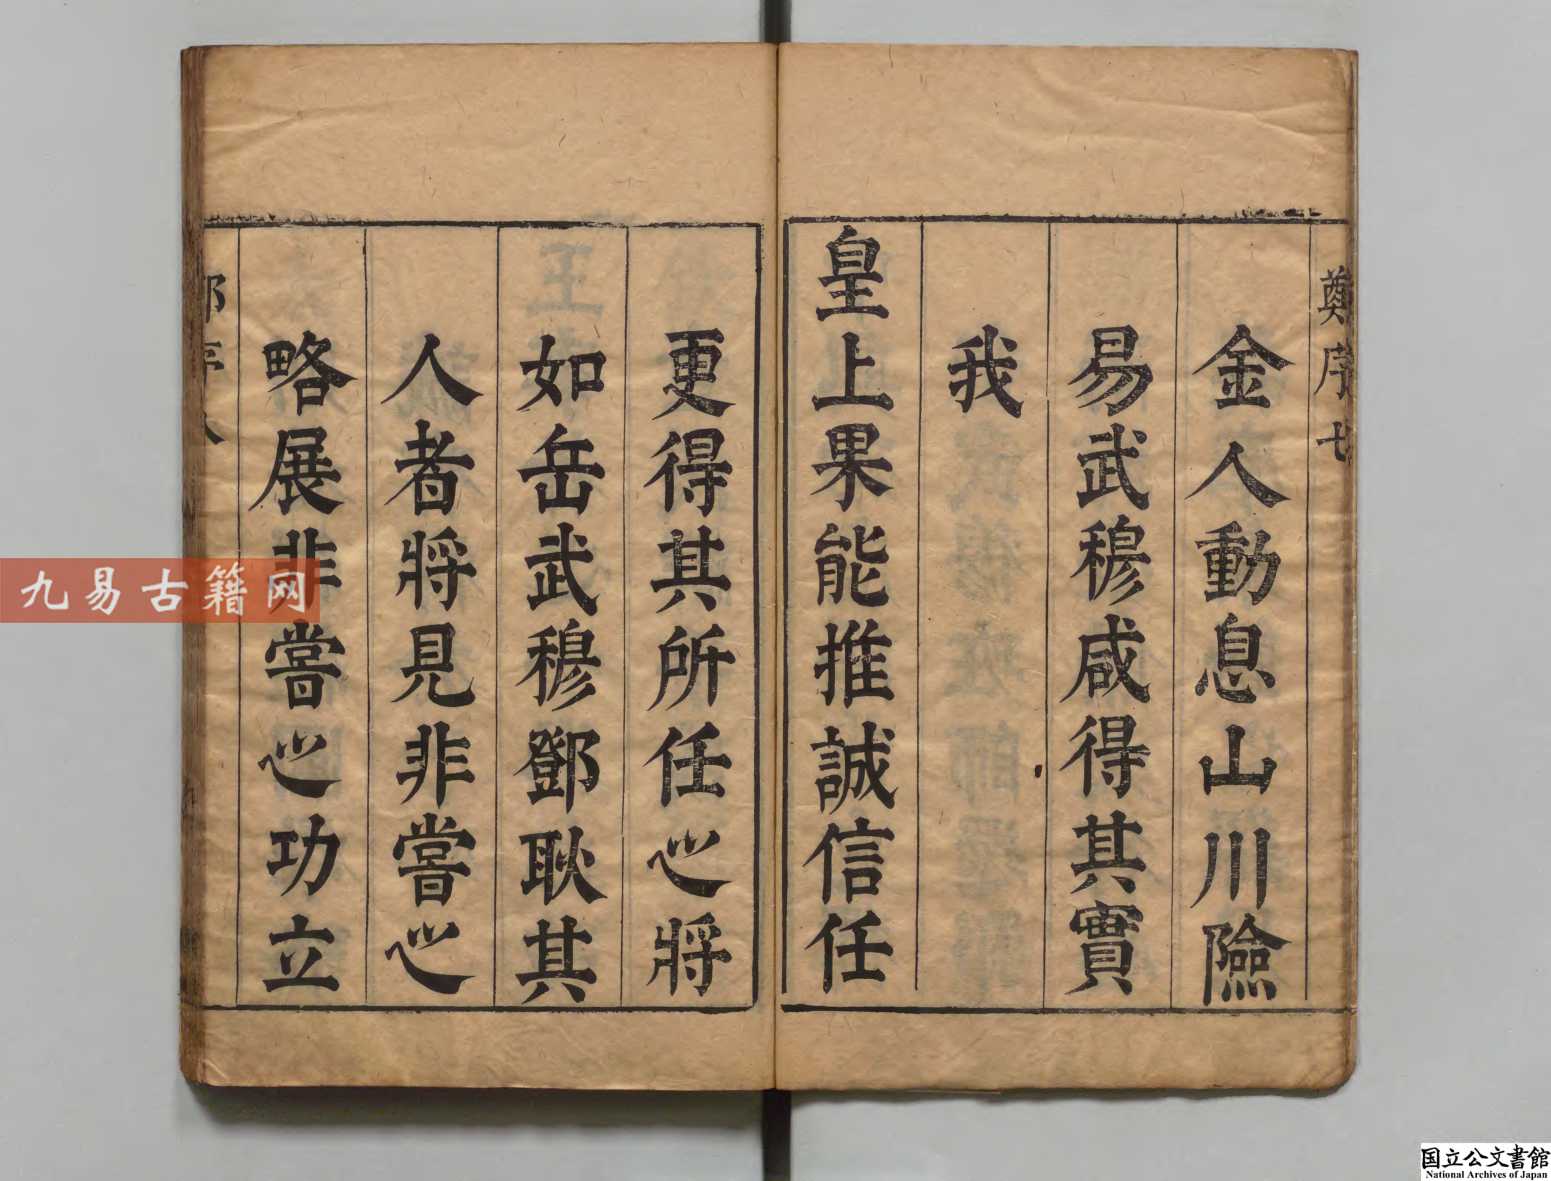 鄭序 七
金人動息山川險
易武穆咸得其實
我
皇上果能推誠信任
更得其所任之將
如岳武穆鄧耿其
人者將見非嘗之
略展非嘗之功立
九易古籍网
国立公文書館
National Archives of Japan